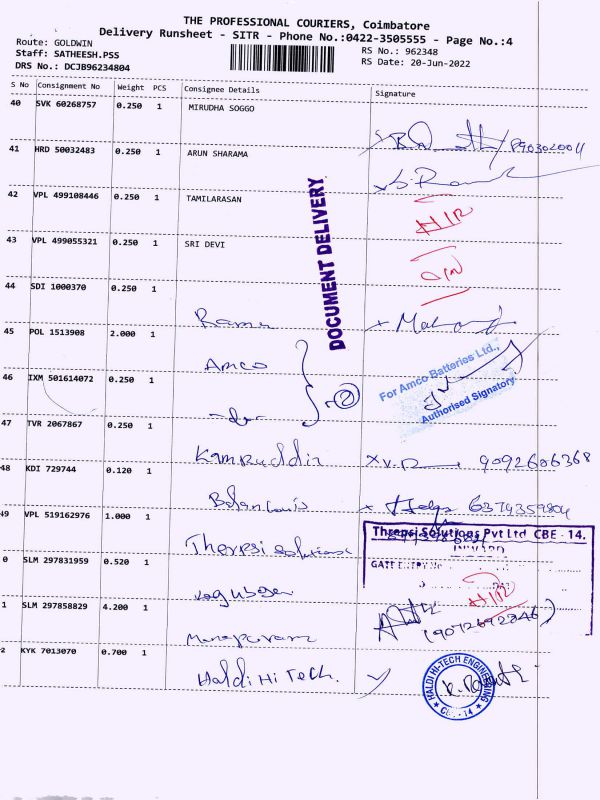 THE PROFESSIONAL COURIERS, Coimbatore
Delivery Runsheet - SITR - Phone No.:0422-3505555 - Page No.:4
Route: GOLDWIN
Staff: SATHEESH.PSS
DRS No.: DCJB96234804
RS No.: 962348
RS Date: 20-Jun-2022
S No Consignment No Weight PCS Consignee Details Signature
40 SVK 60268757 0.250 1 MIRUDHA SOGGO
41 HRD 50032483 0.250 1 ARUN SHARAMA
42 VPL 499108446 0.250 1 TAMILARASAN
43 VPL 499055321 0.250 1 SRI DEVI
DOCUMENT DELIVERY
44 SDI 1000370 0.250 1
45 POL 1513908 2.000 1 Amco
For Amco Batteries Ltd.,
Authorised Signatory
46 IXM 501614072 0.250 1
2
47 TVR 2067867 0.250 1 Kamruddin 9092606368
48 KDI 729744 0.120 1 6374359804
49 VPL 519162976 1.000 1 Therpsi Solutions
Thrensi Solutions Pvt Ltd CBE - 14.
INWARD
GATE ENTRY No
0 SLM 297831959 0.520 1
1 SLM 297858829 4.200 1 (9072692846)
2 KYK 7013070 0.700 1 Haldi Hi Tech.
HALDI HI-TECH ENGINEERING
CBE - 14